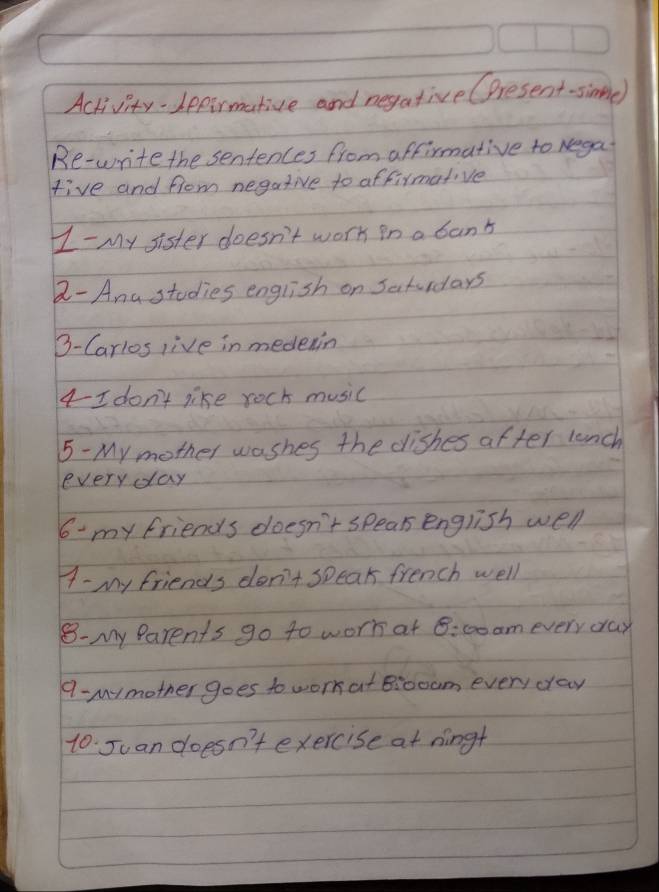 Activity - Affirmative and negative (Present-simple)
Re-write the sentences from affirmative to Nega-
tive and from negative to affirmative
1- My sister doesn't work in a bank
2- Ana studies english on Saturdays
3- Carlos live in medellin
4- I don't like rock music
5- My mother washes the dishes after lunch
every day
6- my friends doesn't speak english well
7- My friends don't speak french well
8- My Parents go to work at 8:00 am every day
9- My mother goes to work at 8:00am every day
10. Juan doesn't exercise at ningt